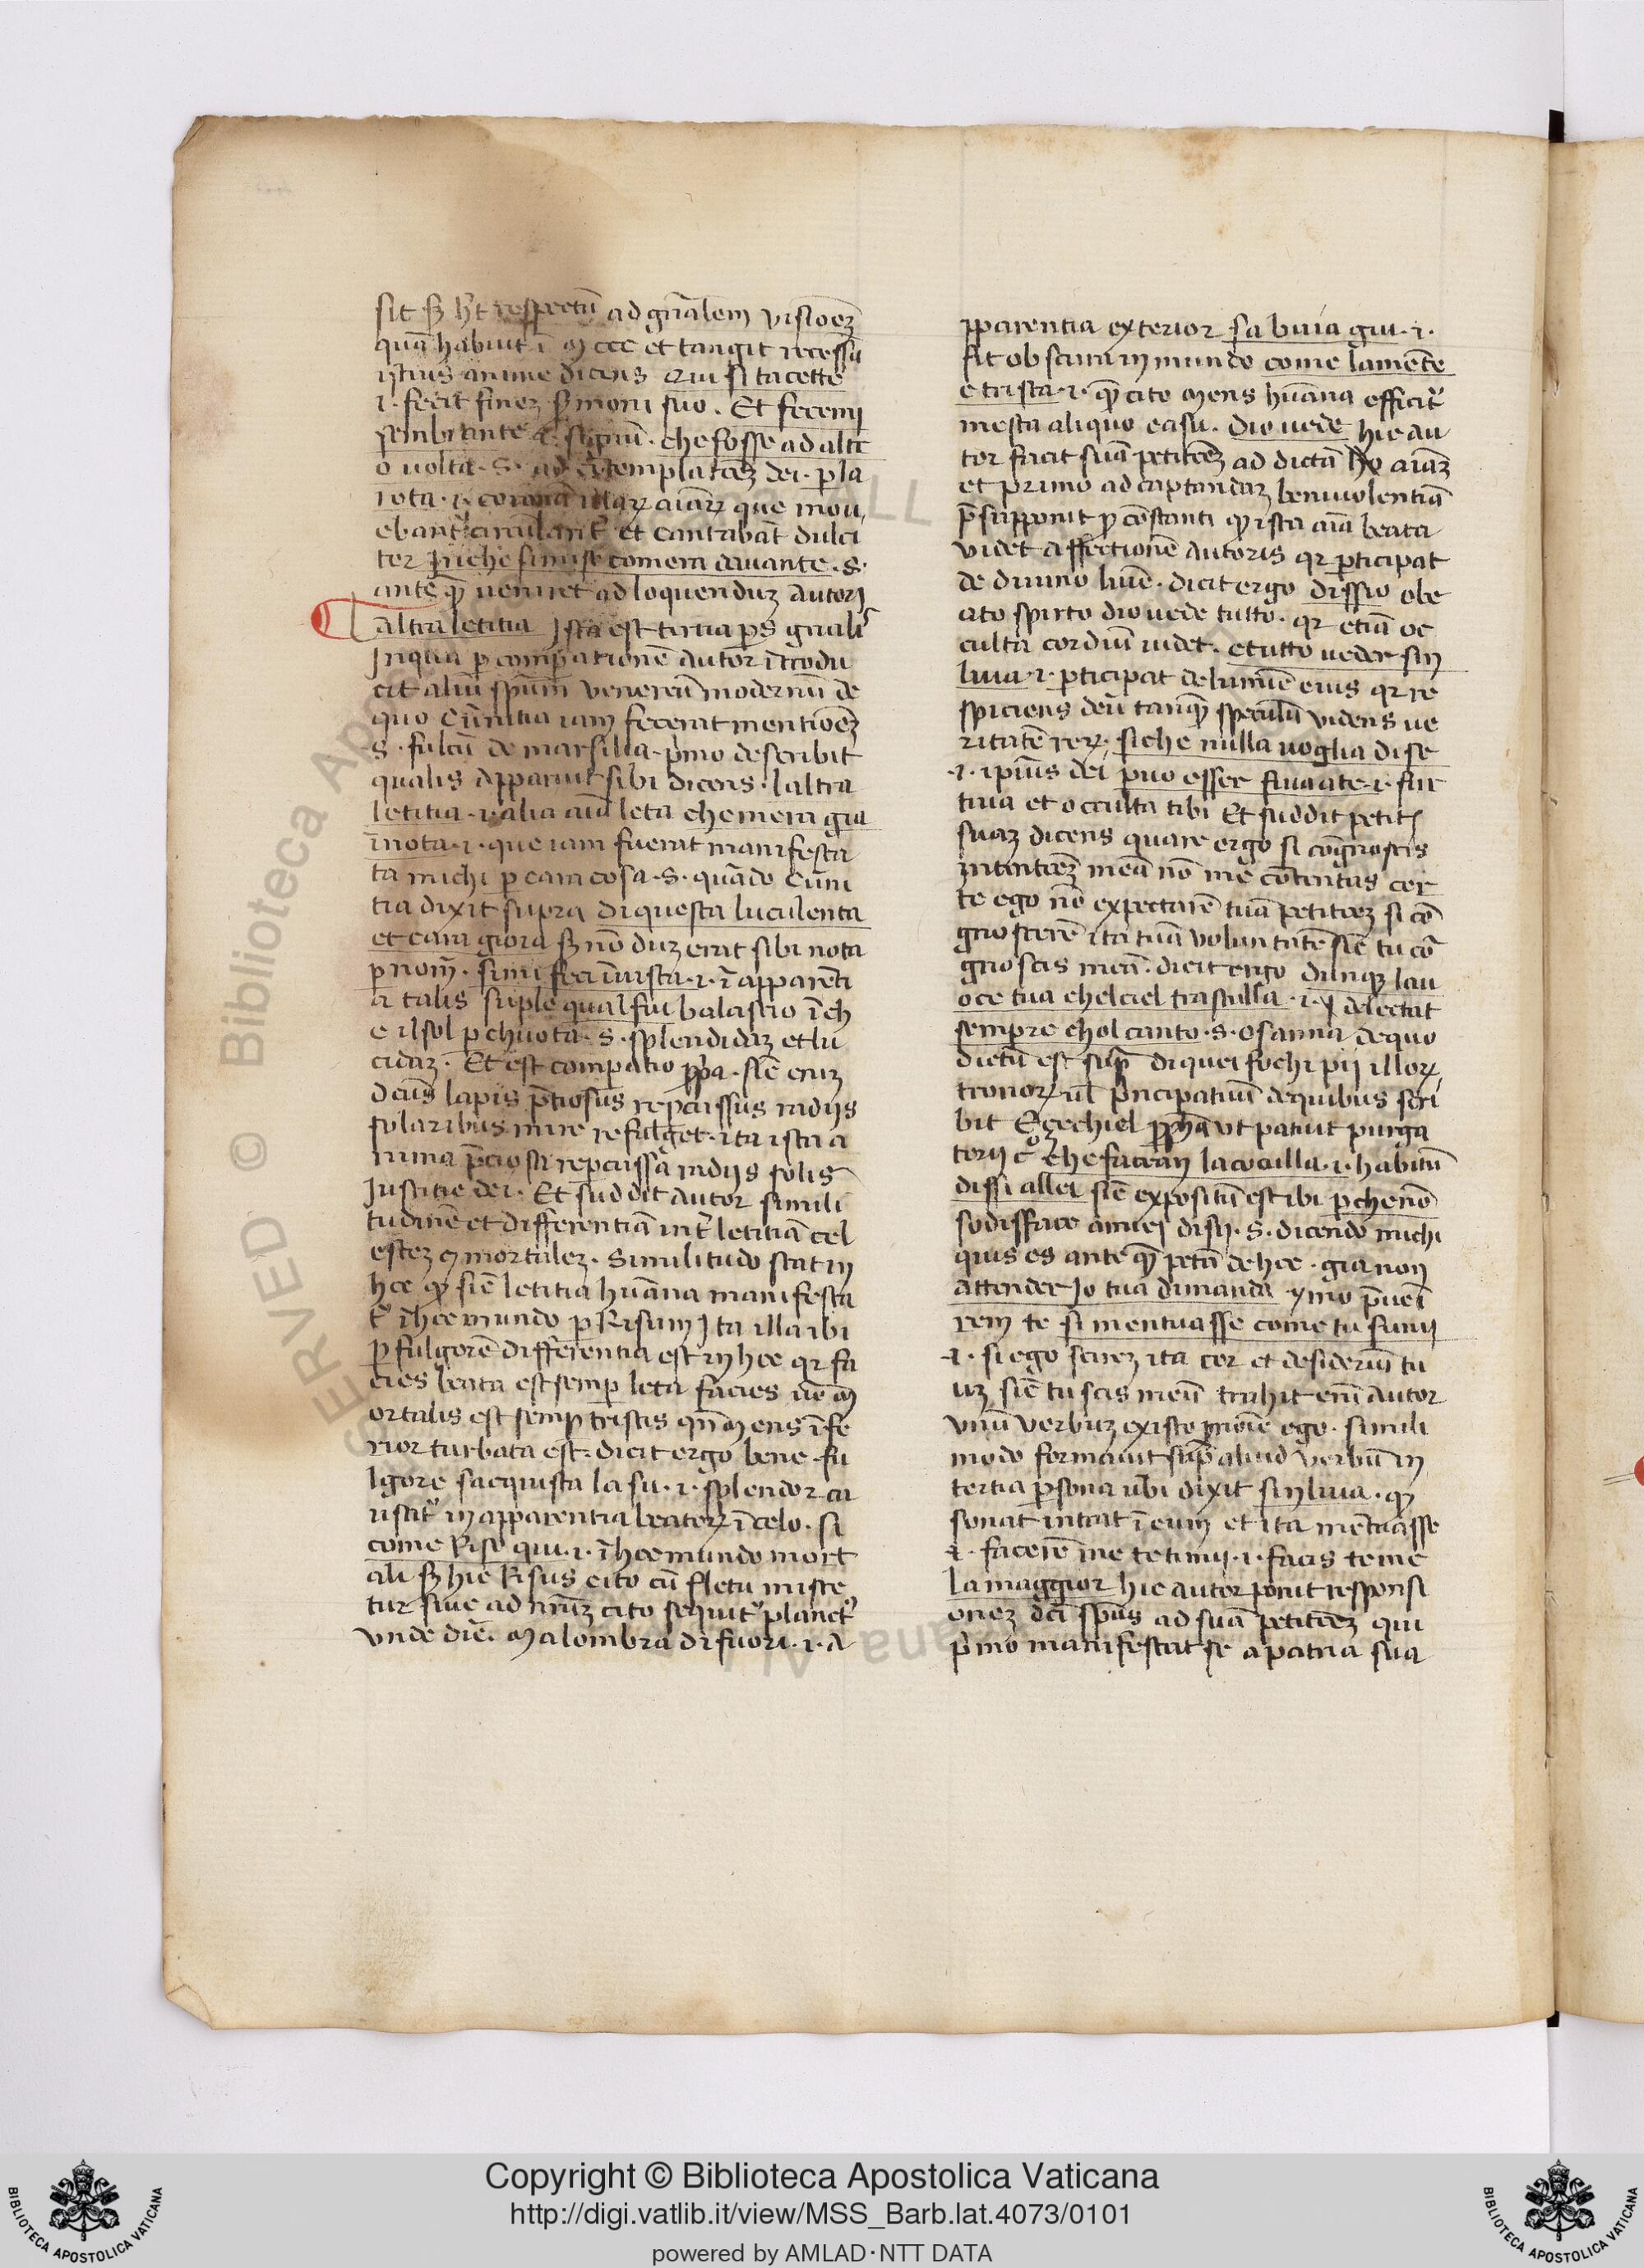 sit sʒ h̄t respectū ad gn̄alem visioēʒ
quā habuit ī mccc et tangit recessū
istius anime dicens Qui si tacette
.i. fecit fineʒ s̄moni suo. Et fecemi
sembiante .i. signū. che fosse ad altr
o uolta .s. ad cōtemplatōeʒ dei. per la
rota .i. coronā illaꝝ aīaꝝ que mou
ebant᷑ circularit᷑ et cantabāt dulci
ter In che si mise comera dauante .s.
ante qꝫ ueniret ad loquenduʒ autori
altra letitia Ista est tertia ps gn̄alis
In qua ꝑ comparationē autor ītrodu
cit aliū spūm venereū modernū de
quo Cūnitia iam fecerat mentioēʒ
s. fulcū de marsilia. pͥmo describit
qualis apparuit sibi dicens. laltra
letitia .i. alia aīa leta che mera gia
īnota .i. que iam fuerat manifesta
ta michi ꝑ cara cosa .s. quādo Cūni
tia dixit supra di questa luculenta
et cara gioia sʒ nō duʒ erat sibi nota
ꝑ nom̄. simi feci īuista .i. ī apparēti
a talis suple qual fin balascio ī ch
e il sol ꝑchuota. s. splendidaʒ et lu
cidaʒ. Et est compatio ꝓpa. sic̄ eniʒ
dcūs lapis p̄tiosus repcussus radijs
solaribus mire refulget. ita ista a
nima p̄ciosa repcussa radijs solis
Iustitie dei. Et suddit autor simili
tudinē et differentiā int᷑ letitiā cel
esteʒ et mortaleʒ. Similitudo stat in
hoc qꝫ sic̄ letitia hūana manifesta
t᷑ ī hoc mundo ꝑ Risum Ita illa ibi
ꝑ fulgorē differentia est in hoc qꝛ fa
cies beata est semꝑ leta facies ūo m
ortalis est semꝑ tristis qn̄ mens īfe
rior turbata est. dicit ergo bene. fu
lgore sacquista la su .i. splendor cu
istat᷑ in apparentia beatoꝝ ī celo. si
come Riso qui .i. ī hoc mundo mort
ali sʒ hic Risus cito cū fletu misce
tur siue ad nimiʒ cito sequit᷑ planct᷑
vnde dic̄. Ma lombra di fuori .i. a
pparentia exterior sa buia giu .i.
fit obscura in mundo come lamente
e trista .i. qꝫ cito mens hūana efficit᷑
mesta aliquo casu. dio uede hic au
tor facit suā petitōeʒ ad dictā aīaʒ
et primo ad captandaʒ beniuolentiā
p̄supponit ꝑ constanti qꝫ ista aīa beata
videt affectionē autoris qꝛ ꝑticipat
de diuino luīe. dicit ergo dissio o be
ato spirto dio uede tutto. qꝛ etiā oc
culta cordiū uidet. et utto ueder sin
luia .i. ꝑticipat de lumīe eius qꝛ re
spiciens deū tanqꝫ speculū videns ue
ritatē reꝝ. siche nulla uoglia di se
.i. ipius dei puo esser fuia a te .i. fur
tiua et occulta tibi Et suddit petit
suaʒ dicens quare ergo si cognoscis
intentōeʒ meā nō me contentas cer
te ego nō expectarē tuā petitōeʒ si co
gnoscerē ita tuā voluntatē sic̄ tu co
gnoscis meā. dicit ergo dunqꝫ la u
oce tua chel ciel trastulla .i. delectat
sempre chol canto .s. osanna de quo
dictū est sup̄ di quei fochi pij illoꝝ
tronoꝝ ul pͥncipatuū de quibus scri
bit Eʒechiel ꝓpħa vt patuit purga
torij che facean la coculla .i. habitū
di si allei sic̄ expositū est ibi ꝑche nō
sodisface amiei disij .s. dicendo michi
quis es ante qꝫ petā de hoc. gia non
attender Io tua dimanda ymo p̄uei
rem te si mentuasse come tu timij
.i. si ego scireʒ ita cor et desideriū tu
uʒ sic̄ tu scis meū trahit enī autor
vnū verbuʒ ex isto pnoīe ego. simili
modo formauit sup̄ aliud verbū in
tertia ꝑsona ubi dixit sinluia. qꝫ
sonat intrat ī eum et ita mētuasse
.i. facerē me te timij .i. facis te me
La maggior hic autor ponit responsi
oneʒ dc̄i spūs ad suā petitōeʒ qui
pͥmo manifestat se a patria sua
Copyright © Biblioteca Apostolica Vaticana
http://digi.vatlib.it/view/MSS_Barb.lat.4073/0101
powered by AMLAD·NTT DATA
BIBLIOTECA APOSTOLICA VATICANA
BIBLIOTECA APOSTOLICA VATICANA